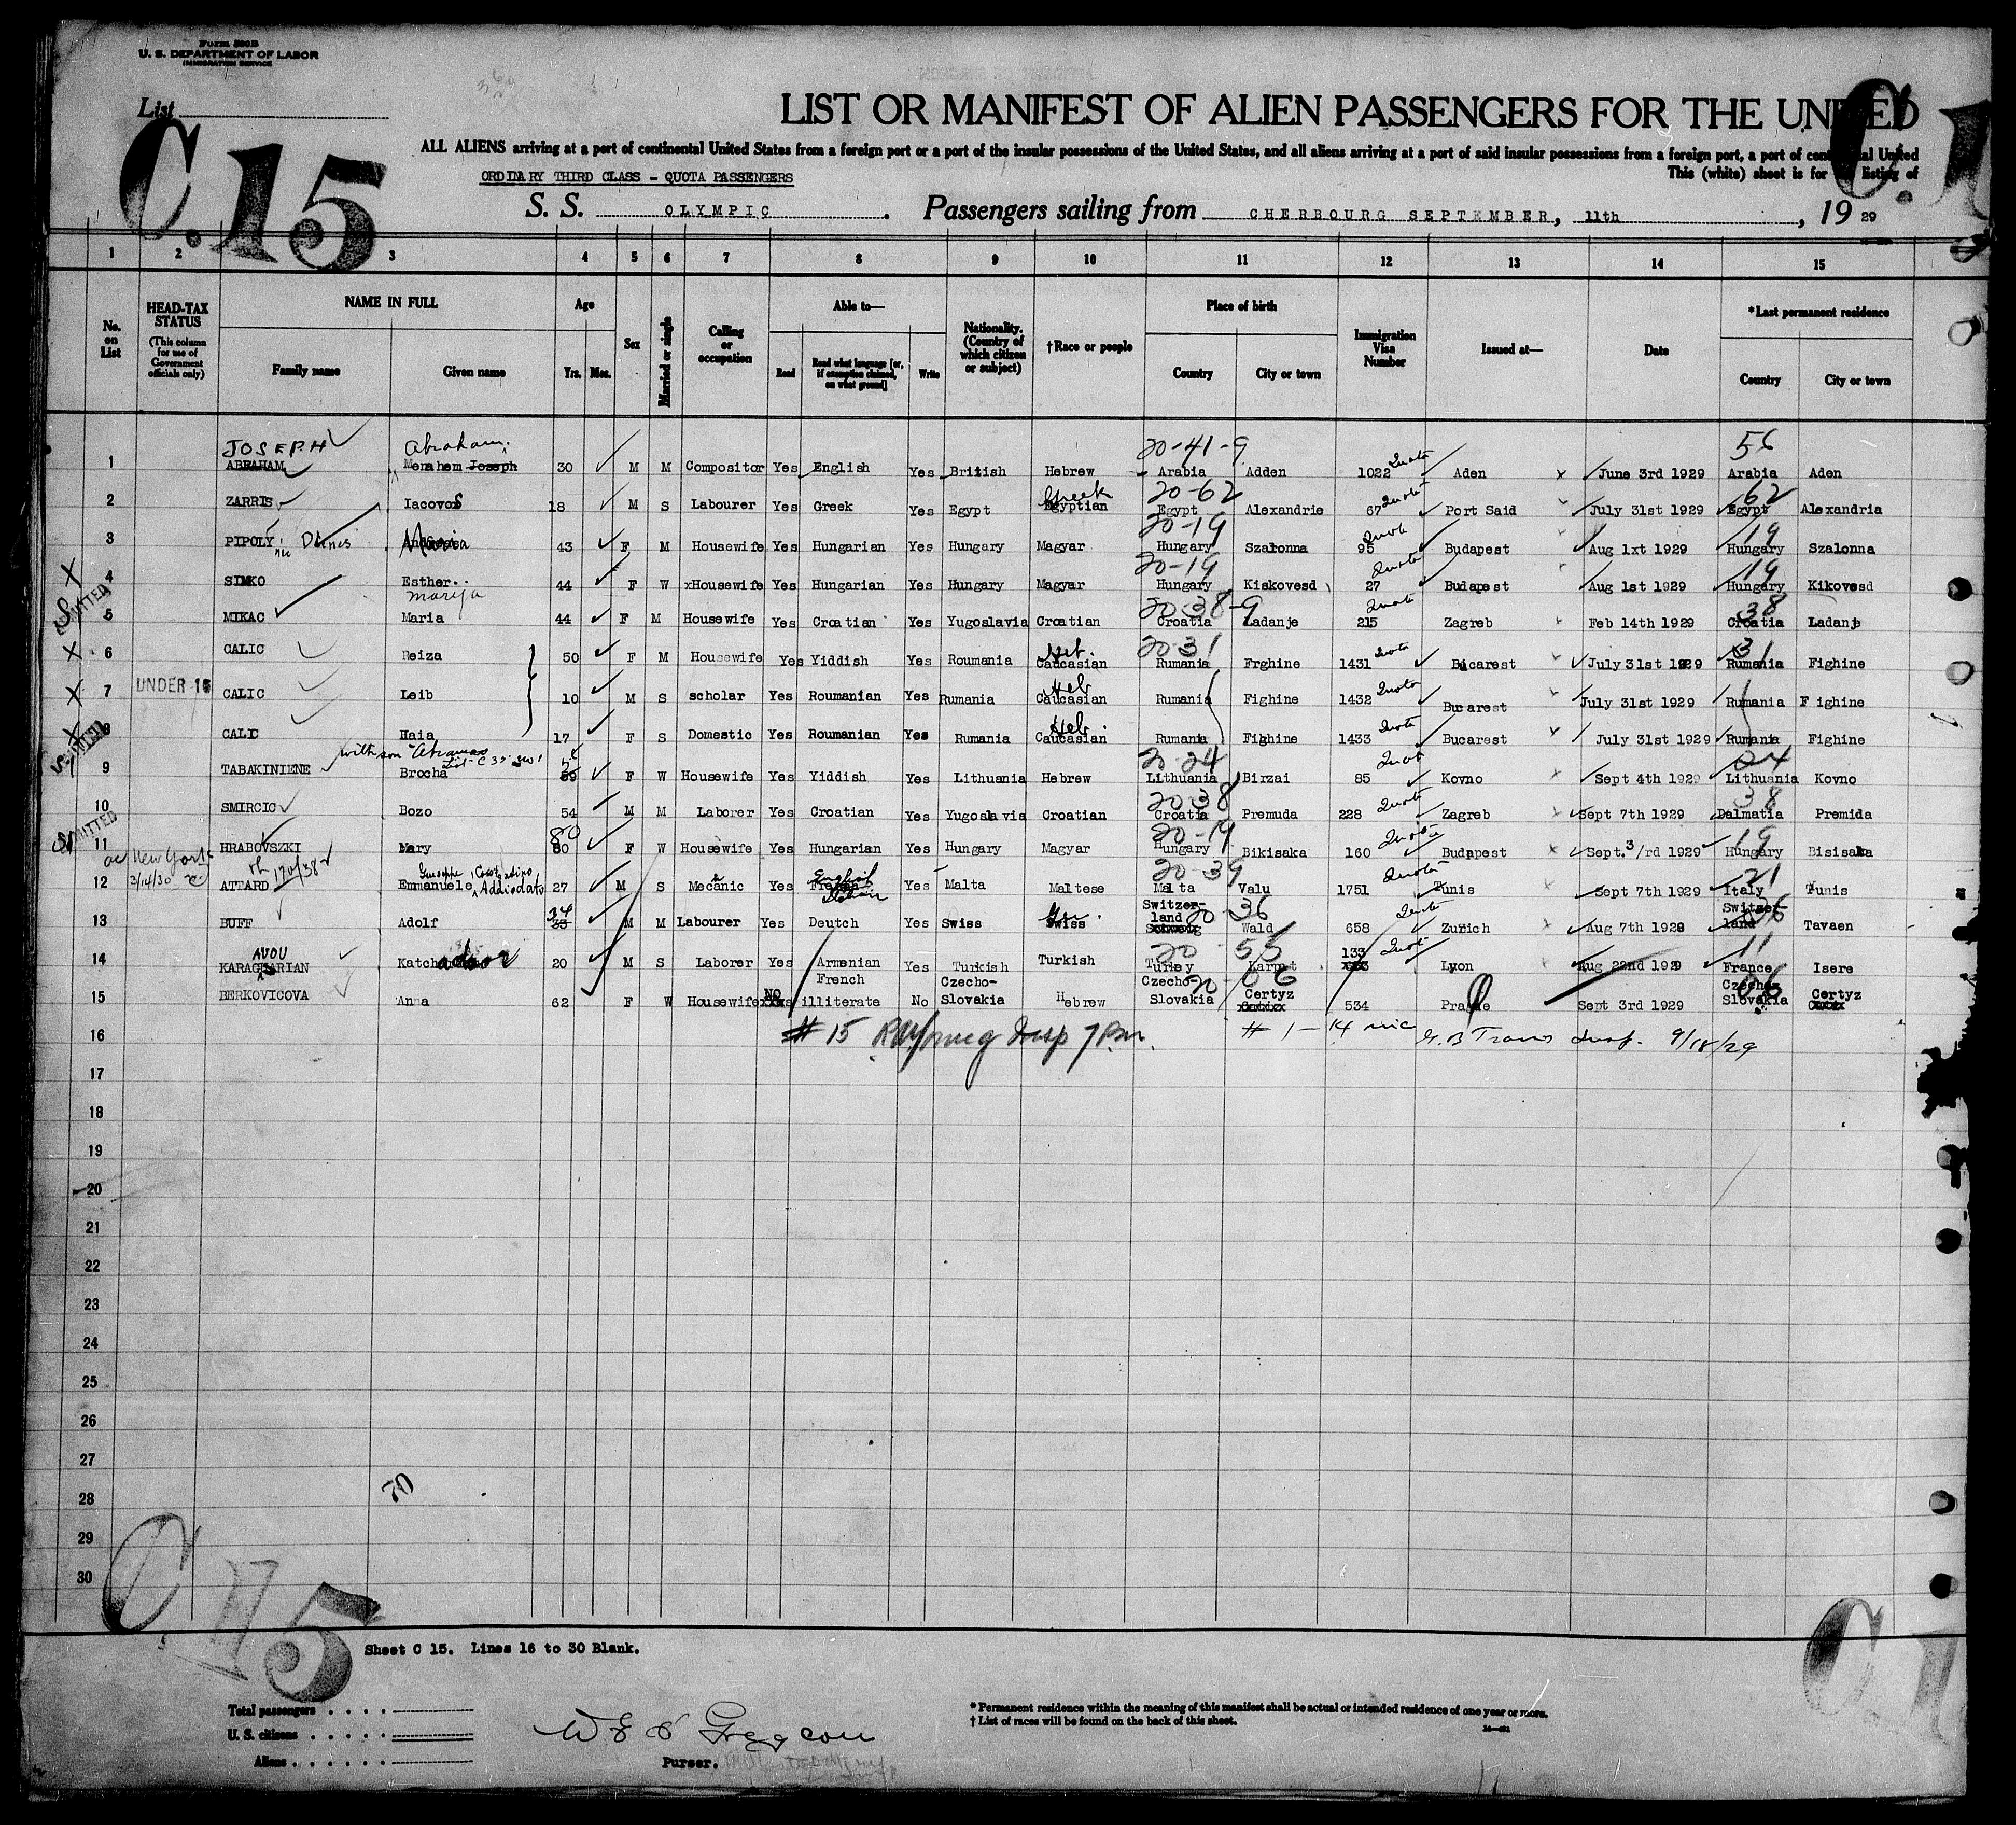 Form 500B
U. S. DEPARTMENT OF LABOR
IMMIGRATION SERVICE
List
C. 15
LIST OR MANIFEST OF ALIEN PASSENGERS FOR THE UNITED
ALL ALIENS arriving at a port of continental United States from a foreign port or a port of the insular possessions of the United States, and all aliens arriving at a port of said insular possessions from a foreign port, a port of continental United
This (white) sheet is for the listing of
ORDINARY THIRD CLASS - QUOTA PASSENGERS
S. S. OLYMPIC . Passengers sailing from CHERBOURG SEPTEMBER, 11th , 19 29
1 2 3 4 5 6 7 8 9 10 11 12 13 14 15
No. on List
HEAD-TAX STATUS (This column for use of Government officials only)
NAME IN FULL Family name Given name
Age Yrs. Mos.
Sex
Married or single
Calling or occupation
Able to— Read Read what language [or, if exemption claimed, on what ground] Write
Nationality. (Country of which citizen or subject)
†Race or people
Place of birth Country City or town
Immigration Visa Number
Issued at—
Date
*Last permanent residence Country City or town
JOSEPH Abraham. 20-41-9 Quota 56
1 ABRAHAM Menahem Joseph 30 M M Compositor Yes English Yes British Hebrew Arabia Adden 1022 Aden June 3rd 1929 Arabia Aden
Greek 20-62 Quota 62
2 ZARRIS IacovoS 18 M S Labourer Yes Greek Yes Egypt Egyptian Egypt Alexandrie 67 Port Said July 31st 1929 Egypt Alexandria
20-19 Quota 19
3 PIPOLY 43 F M Housewife Yes Hungarian Yes Hungary Magyar Hungary Szalonna 95 Budapest Aug 1xt 1929 Hungary Szalonna
20-19 Quota 19
4 SIMKO Esther 44 F W xHousewife Yes Hungarian Yes Hungary Magyar Hungary Kiskovesd 27 Budapest Aug 1st 1929 Hungary Kikovesd
Marija 20-38-9 Quota 38
5 MIKAC Maria 44 F M Housewife Yes Croatian Yes Yugoslavia Croatian Croatia Ladanje 215 Zagreb Feb 14th 1929 Croatia Ladanje
Heb. 20-31 Quota 31
6 CALIC Reiza 50 F M Housewife Yes Yiddish Yes Roumania Caucasian Rumania Frghine 1431 Bucarest July 31st 1929 Rumania Fighine
UNDER 16 Heb Quota
7 CALIC Leib 10 M S scholar Yes Roumanian Yes Rumania Caucasian Rumania Fighine 1432 Bucarest July 31st 1929 Rumania Fighine
Heb. Quota
8 CALIC Haia 17 F S Domestic Yes Roumanian Yes Rumania Caucasian Rumania Fighine 1433 Bucarest July 31st 1929 Rumania Fighine
with son 20-24 Quota 24
9 TABAKINIENE Brocha 59 F W Housewife Yes Yiddish Yes Lithuania Hebrew Lithuania Birzai 85 Kovno Sept 4th 1929 Lithuania Kovno
20-38 Quota 38
10 SMIRCIC Bozo 54 M M Laborer Yes Croatian Yes Yugoslavia Croatian Croatia Premuda 228 Zagreb Sept 7th 1929 Dalmatia Premida
80 20-19 Quota 19
11 HRABOVSZKI Mary 80 F W Housewife Yes Hungarian Yes Hungary Magyar Hungary Bikisaka 160 Budapest Sept. 3/rd 1929 Hungary Bisisaka
New York 3/14/30 English Italian 20-39 Quota 21
12 ATTARD Emmanuele Addiodato 27 M S Mecanic Yes French Yes Malta Maltese Malta Valu 1751 Tunis Sept 7th 1929 Italy Tunis
34 Switzer-land 20 36 Quota 36
13 BUFF Adolf 33 M M Labourer Yes Deutch Yes Swiss Swiss Wald 658 Zurich Aug 7th 1929 Switzer-land Tavaen
AVOU 20 55 133 Quota 11
14 KARAGUARIAN 20 M S Laborer Yes Armenian French Yes Turkish Turkish Turkey Karput Lyon Aug 22nd 1929 France Isere
NO 20-06 06
15 BERKOVICOVA Anna 62 F W Housewife illiterate No Czecho-Slovakia Hebrew Czecho-Slovakia Certyz 534 Prague Sept 3rd 1929 Czecho-Slovakia Certyz
16 # 15 Insp 7 Pm. # 1 - 14 inc Insp. 9/18/29
17
18
19
20
21
22
23
24
25
26
27
28 70
29
30
C 15
C 1
Sheet C 15. Lines 16 to 30 Blank.
Total passengers
U. S. citizens
Aliens
Purser.
* Permanent residence within the meaning of this manifest shall be actual or intended residence of one year or more.
† List of races will be found on the back of this sheet.